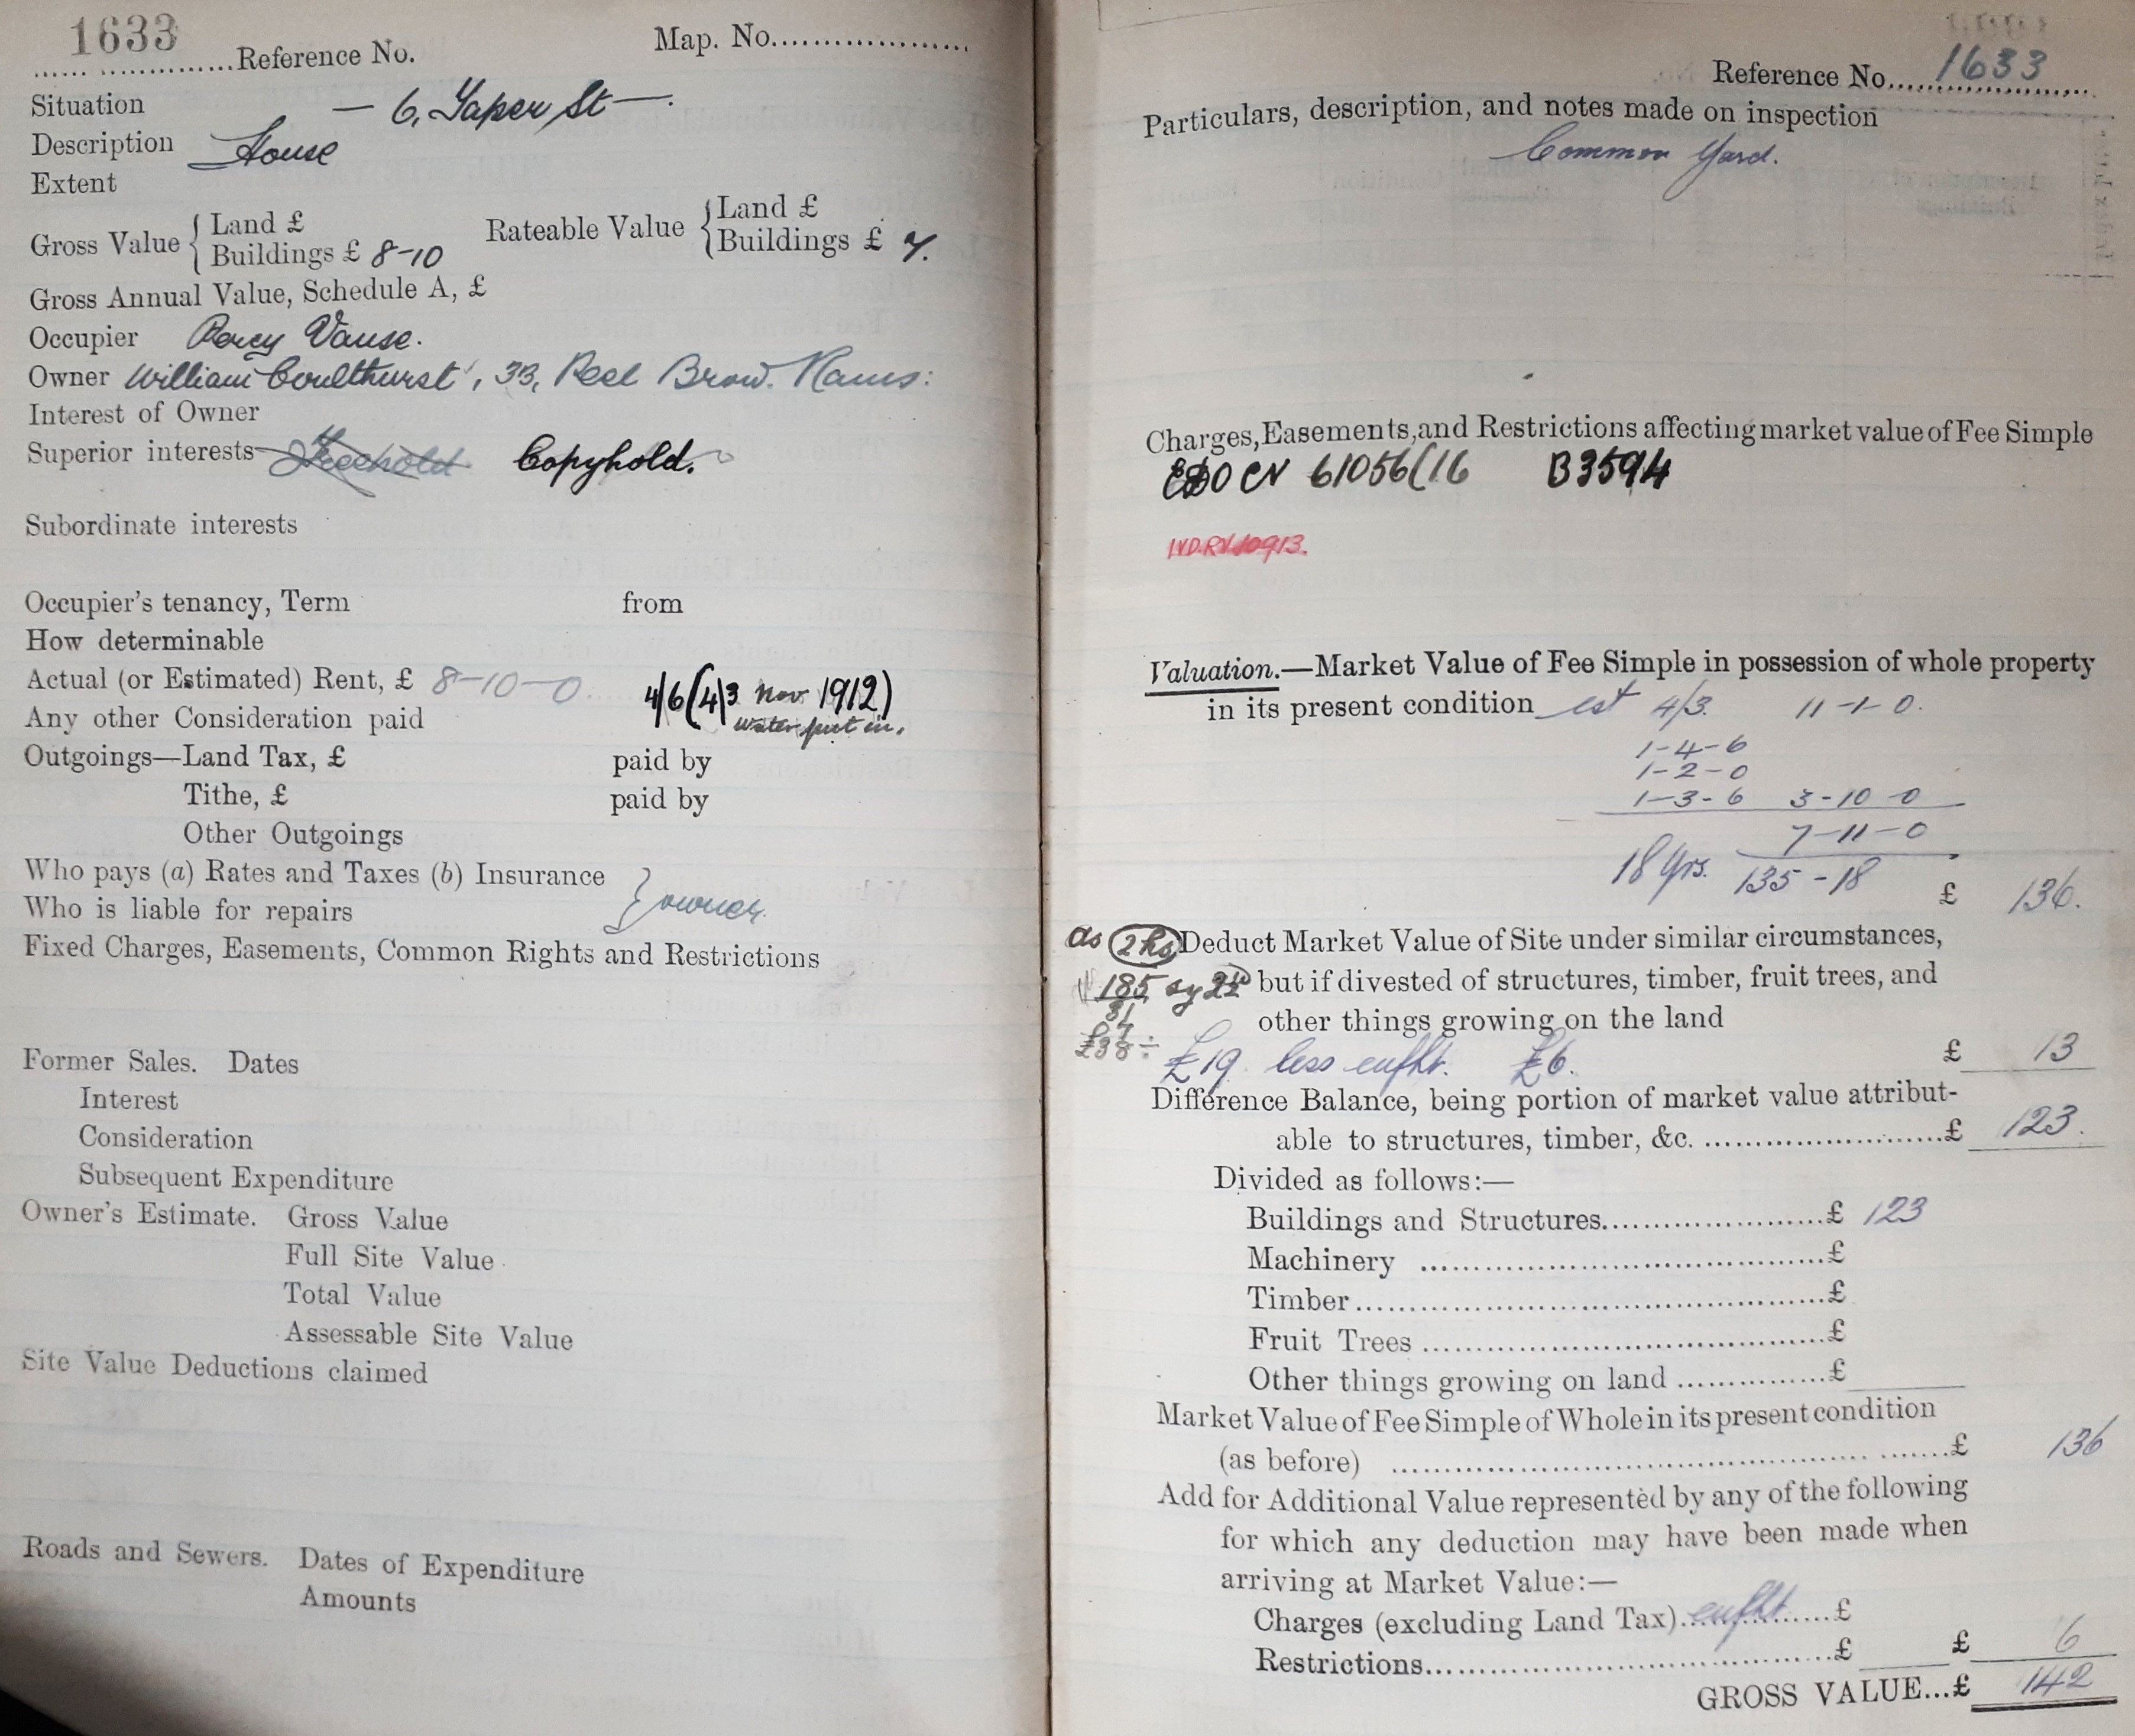 1633
...... ..............Reference No. Map. No....................
Situation — 6, Taper St —.
Description House
Extent
Gross Value { Land £
Buildings £ 8-10
Rateable Value { Land £
Buildings £ 7.
Gross Annual Value, Schedule A, £
Occupier Percy Vause.
Owner William Coulthurst, 33, Peel Brow. Rams:
Interest of Owner
Superior interests Freehold Copyhold.
Subordinate interests
Occupier's tenancy, Term from
How determinable
Actual (or Estimated) Rent, £ 8-10-0 4/6 (4/3 Nov 1912)
Any other Consideration paid water put in.
Outgoings—Land Tax, £ paid by
Tithe, £ paid by
Other Outgoings
Who pays (a) Rates and Taxes (b) Insurance
Who is liable for repairs } owner.
Fixed Charges, Easements, Common Rights and Restrictions
Former Sales. Dates
Interest
Consideration
Subsequent Expenditure
Owner's Estimate. Gross Value
Full Site Value
Total Value
Assessable Site Value
Site Value Deductions claimed
Roads and Sewers. Dates of Expenditure
Amounts
Reference No..... 1633
Particulars, description, and notes made on inspection
Common Yard.
Charges, Easements, and Restrictions affecting market value of Fee Simple
CN 61056/16 B3594
10913.
Valuation.—Market Value of Fee Simple in possession of whole property
in its present condition est 4/3. 11-1-0.
1-4-6
1-2-0
1-3-6 3-10-0
7-11-0
18 yrs. 135-18 £ 136.
as 2 hs Deduct Market Value of Site under similar circumstances,
185 sy but if divested of structures, timber, fruit trees, and
other things growing on the land
£38 ÷ £19 less eufht. £6. £ 13
Difference Balance, being portion of market value attribut-
able to structures, timber, &c. ........................£ 123.
Divided as follows:—
Buildings and Structures.......................£ 123
Machinery ..........................................£
Timber.................................................£
Fruit Trees .........................................£
Other things growing on land ...............£
Market Value of Fee Simple of Whole in its present condition
(as before) .................................................. .......£ 136
Add for Additional Value represented by any of the following
for which any deduction may have been made when
arriving at Market Value:—
Charges (excluding Land Tax)..eufht......£
Restrictions.......................................£ £ 6
GROSS VALUE...£ 142